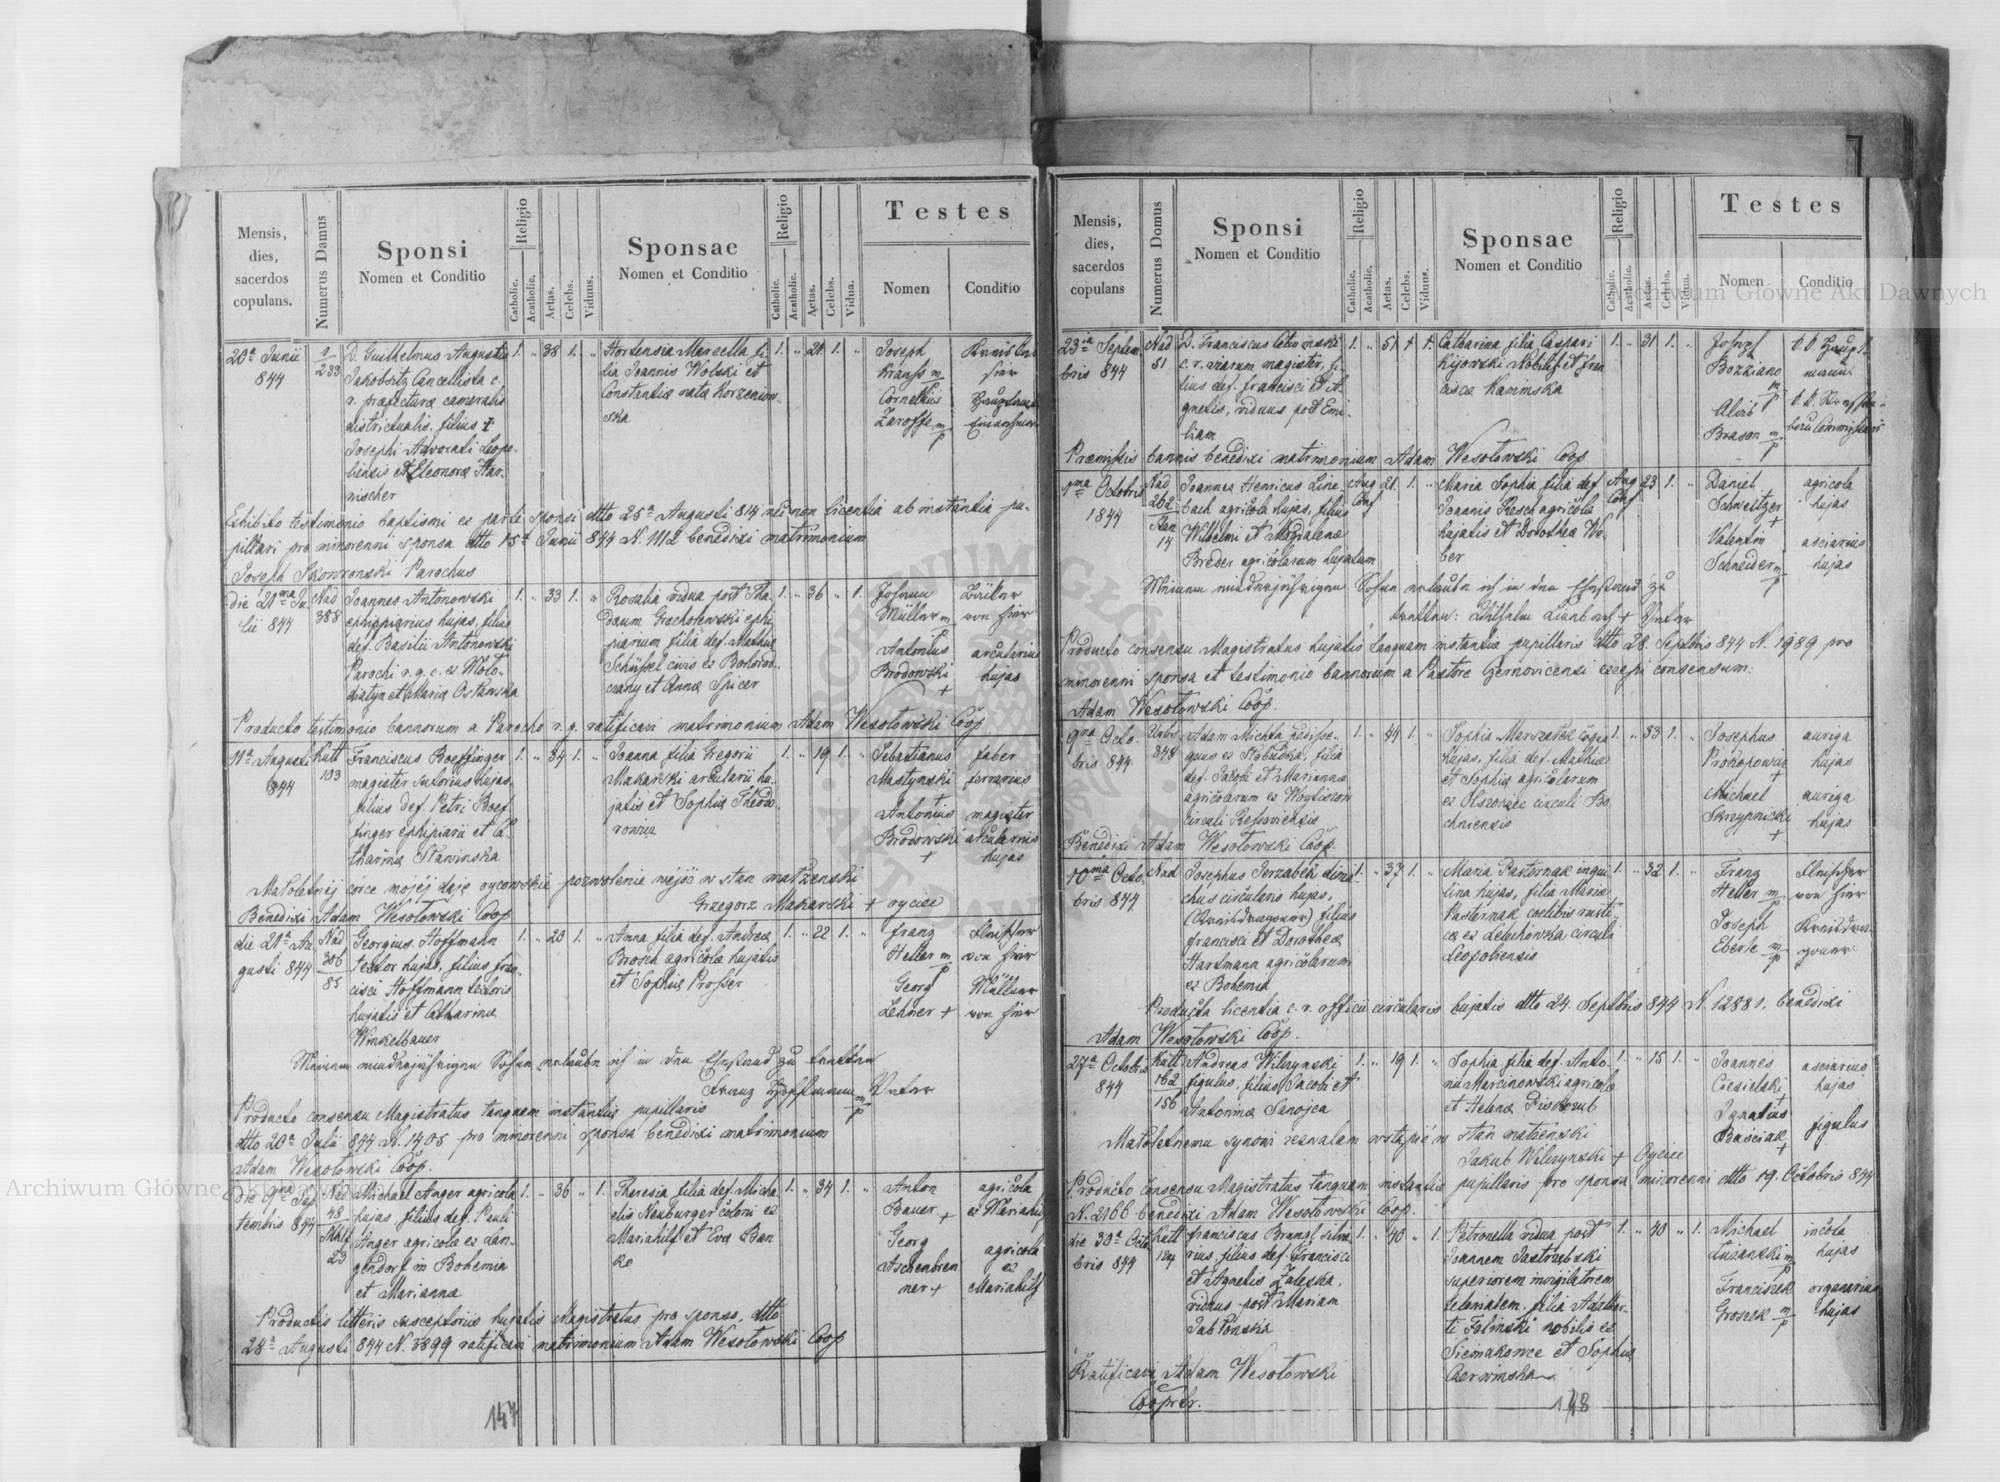 Mensis,
dies,
sacerdos
copulans.
Numerus Damus
Sponsi
Nomen et Conditio
Religio
Catholic.
Acatholic.
Aetas.
Celebs.
Viduus.
Sponsae
Nomen et Conditio
Religio
Catholic.
Acatholic.
Aetas.
Celebs.
Vidua.
Testes
Nomen
Conditio
20ª Junii
844
1
233
D. Guilhelmus Augustus
Jakobsitz Cancellista c.
r. præfecturæ cameralis
districtualis, filius
Josephi Advocati Leopo-
liensis et Eleonoræ Har-
nischer
1. " 38 1. "
Hortensia Marcella fi-
lia Joannis Wolski et
Constantiæ natæ Korzeniow-
ska
1. " 21. 1. "
Joseph
Krauss
Cornelius
Exhibito testimonio baptismi ex parte sponsi dtto 25ª Augusti 814 nec non licentia ab instantia pu-
pillari pro minorenni sponsa dtto 15ª Junii 844 N. 1112 benedixi matrimonium
Joseph Skowronski Parochus
die 21ma Ju-
lii 844
Nad
388
Joannes Antonowski
ephipiarius hujas, filius
def. Basilii Antonowski
Parochi r. g. c. ex Woło-
diatyn et Maria Ostanska
1. " 33 1. "
Rosalia vidua post Tha-
daum Grocholewski ephi-
piarium filia def. Mathiæ
Schüssel civis ex Bohorod-
czany et Anna Spicer
1. " 36 " 1.
Johann
Müller
von hier
Antonius
Brodowski
+
arcularius
hujas
Producto testimonio bannorum a Parocho r. g. ratificavi matrimonium Adam Wesołowski Coop
11ª Augusti
844
Kutt
103
Franciscus Boeffinger
magister sutorius hujas,
filius def. Petri Boef-
finger ephipiarii et Ca-
tharina Stawinska
1. " 34 1. "
Joanna filia Gregorii
Makarski arcularii hu-
jatis et Sophia Theodo-
rowicz
1. " 19 1. "
Sebastianus
Mastynski
+
faber
ferrarius
Antonius
Brodowski
+
magister
arcularius
hujas
Małoletnej córce mojéj daję oycowskie pozwolenie wejść w stan małżenski
Grzegorz Makarski + oyciec
Benedixi Adam Wesołowski Coop
die 21ª Au-
gusti 844
Nad
306
85
Georgius Hoffmann
textor hujas, filius Fran-
cisci Hoffmann textoris
hujatis et Catharina
Winkelbauer
1. " 20 1. "
Anna filia def. Andrea
Brosch agricola hujatis
et Sophia Prosser
1. " 22 1. "
Franz
Heller
Fleischer
von hier
Georg
Lehner +
Müller
von hier
Meinem minderjährigen Sohne erlaube ich in den Ehestand zu tretten
Franz Hoffmann Vater
Producto consensu Magistratus tanquam instantiæ pupillaris
dtto 20ª Julii 844 N. 1405 pro minorenni sponsa benedixi matrimonium
Adam Wesołowski Coop.
die 9na Sep-
tembris 844
Nad
48
Mhlf
23
Michael Anger agricola
hujas filius def. Pauli
Anger agricola ex Lan-
gendorf in Bohemia
et Marianna
1. " 36 " 1.
Theresia filia def. Micha-
elis Neuburger coloni ex
Mariahilf et Eva Ban-
ko
1. " 34 1. "
Anton
Bauer +
agricola
ex Mariahilf
Georg
Aschenbren
ner +
agricola
ex
Mariahilf
Productis litteris susceptoriis hujatis Magistratus pro sponso, dtto
28ª Augusti 844 N. 3899 ratificavi matrimonium Adam Wesołowski Coop
147
Mensis,
dies,
sacerdos
copulans
Numerus Domus
Sponsi
Nomen et Conditio
Religio
Catholic.
Acatholic.
Aetas.
Celebs.
Viduus.
Sponsae
Nomen et Conditio
Religio
Catholic.
Acatholic.
Aetas.
Celebs.
Vidua.
Testes
Nomen
Conditio
23ia Septem-
bris 844
Nad
51
D. Franciscus
c. r. viarum magister, fi-
lius def. Francisci et A-
gnetis, viduus post Emi-
liam
1. " 51
Catharina filia Caspari
Kijowski Nobilis et Fran-
cisca Kaminska
1. " 31 1. "
Joseph
Bozziano
Alois
Brason
Præmissis bannis benedixi matrimonium Adam Wesołowski Coop
1ma Octobris
1844
Nad
262
14
Joannes Henricus Line-
bach agricola hujas, filius
Wilhelmi et Magdalena
Breder agricolarum hujatum
Aug
Conf
21. 1. "
Maria Sophia filia def.
Joannis Resch agricola
hujatis et Dorothea We-
ber
Aug
Conf
23 1. "
Daniel
Schweitzer
+
agricola
hujas
Valentin
Schneider
asciarius
hujas
Meinem minderjährigen Sohne erlaube ich in den Ehestand zu
tretten: Wilhelm Linebach + Vater
Producto consensu Magistratus hujatis tanquam instantiæ pupillaris dtto 28. Septbris 844 N. 1989 pro
minorenni sponsa et testimonio bannorum a Pastore Czernovicensi excepi consensum.
Adam Wesołowski Coop.
9na Octo-
bris 844
Urbs
348
Adam Michta pedisse-
quus ex Stobudka, filius
def. Jacobi et Marianna
agricolarum ex
circuli Resoviensis
1. " 44 1. "
Sophia Marszałek coqua
hujas, filia def. Mathiæ
et Sophia agricolarum
ex Olszowiec circuli Bo-
chniensis
1. " 33 1. "
Josephus
Prokopowicz
+
auriga
hujas
Michael
Skrzypnicki
+
auriga
hujas
Benedixi Adam Wesołowski Coop.
10ma Octo-
bris 844
Nad
Josephus Jerzabek
chus circularis hujas,
(Kreisdragoner) filius
Francisci et Dorothea
Hartmann agricolarum
ex Bohemia
1. " 37 1. "
Maria Pasternak inqui-
lina hujas, filia Maria
Pasternak coelibis rusti-
ca ex Lelechówka circuli
Leopoliensis
1. " 32 1. "
Franz
Heller
Fleischer
von hier
Joseph
Eberle
Kreisdra-
goner
Producta licentia c. r. officii circularis hujatis dtto 24. Septbris 844 N. 12881. benedixi
Adam Wesołowski Coop.
27ª Octobris
844
Kutt
162
156
Andreas Wilczynski
figulus, filius Jacobi et
Antonina Sanojca
1. " 19 1. "
Sophia filia def. Anto-
nii Marcinowski agricola
et Helena Piskozub
1. " 15 1. "
Joannes
Ciesielski
+
asciarius
hujas
Ignatius
Baściak
+
figulus
Małoletnemu synowi zezwalam wstąpić w stan małżenski
Jakub Wilczynski + Oyciec
Producto consensu Magistratus tanquam instantiæ pupillaris pro sponsa minorenni dtto 19. Octobris 844
N. 2166 benedixi Adam Wesołowski Coop.
die 30ª Octo-
bris 844
Kutt
124
Franciscus Brangl
rius, filius def. Francisci
et Agnetis Zaleska,
viduus post Mariam
Jabłonska
1. " 40 " 1.
Petronella vidua post
Joannem Jastrzebski
superiorem invigilatorem
telonialem, filia Adalber-
ti Folinski nobilis ex
Siemakowce et Sophia
Czerwinska
1. " 40 " 1.
Michael
incola
hujas
Franciszek
Groszek
organarius
hujas
Ratificavi Adam Wesołowski
Cooper.
148
Archiwum Główne Akt Dawnych
Archiwum Główne Akt Dawnych